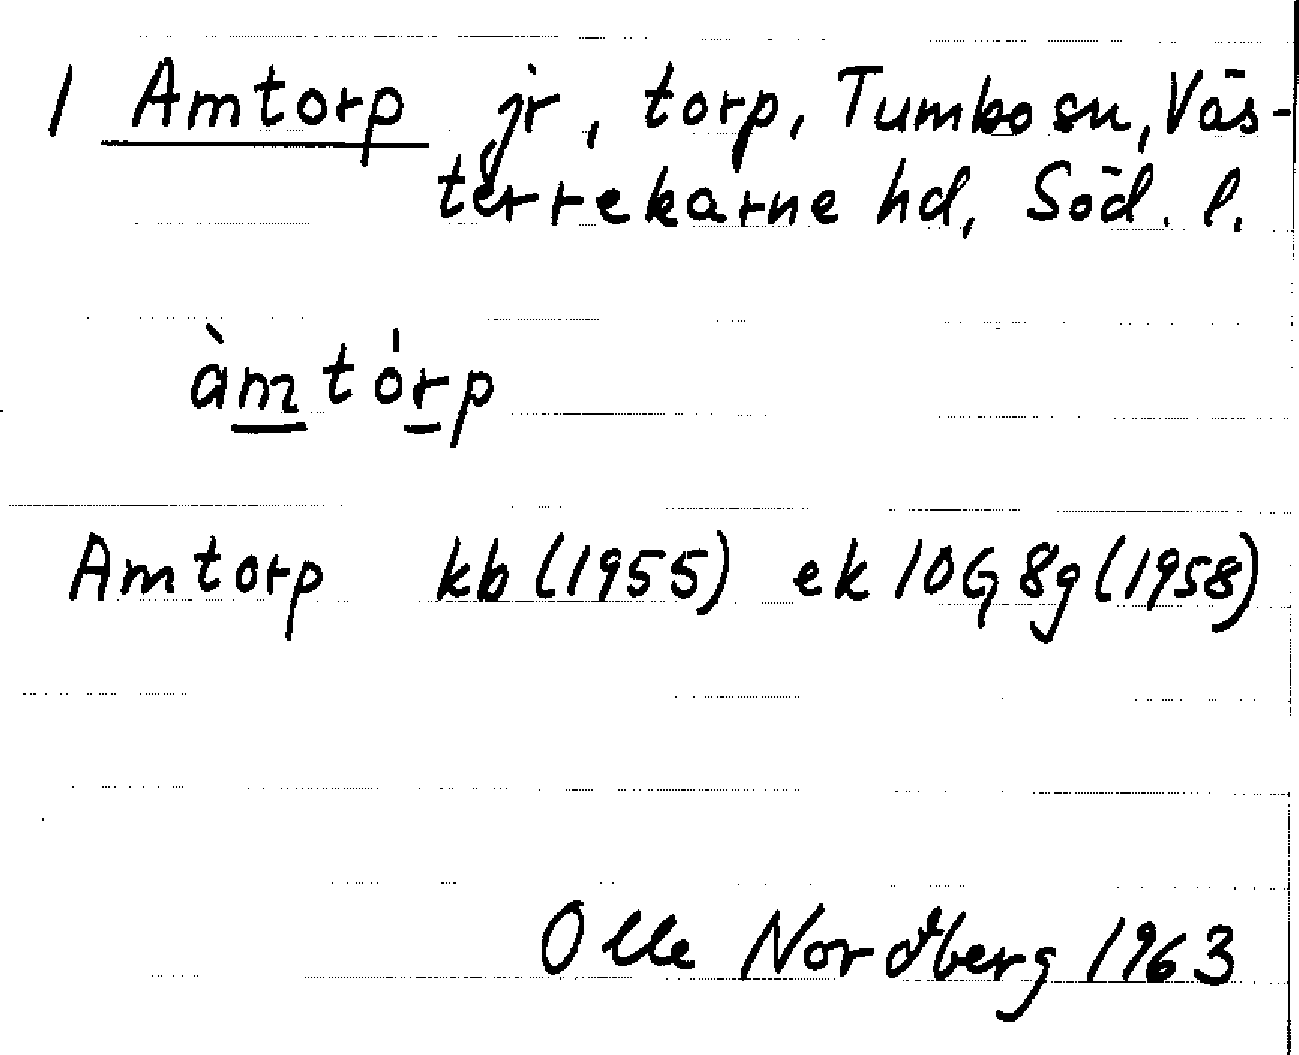 1 Amtorp jr, torp, Tumbo sn, Väs-
terrekarne hd, Söd. l.
àmtórp
Amtorp kb (1955) ek 10G 8g (1958)
Olle Nordberg 1963